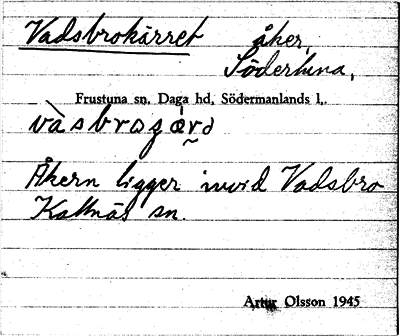 Vadsbrokärret åker,
Södertuna,
Frustuna sn, Daga hd, Södermanlands l.
Åkern ligger invid Vadsbro
Kattnäs sn.
Artur Olsson 1945